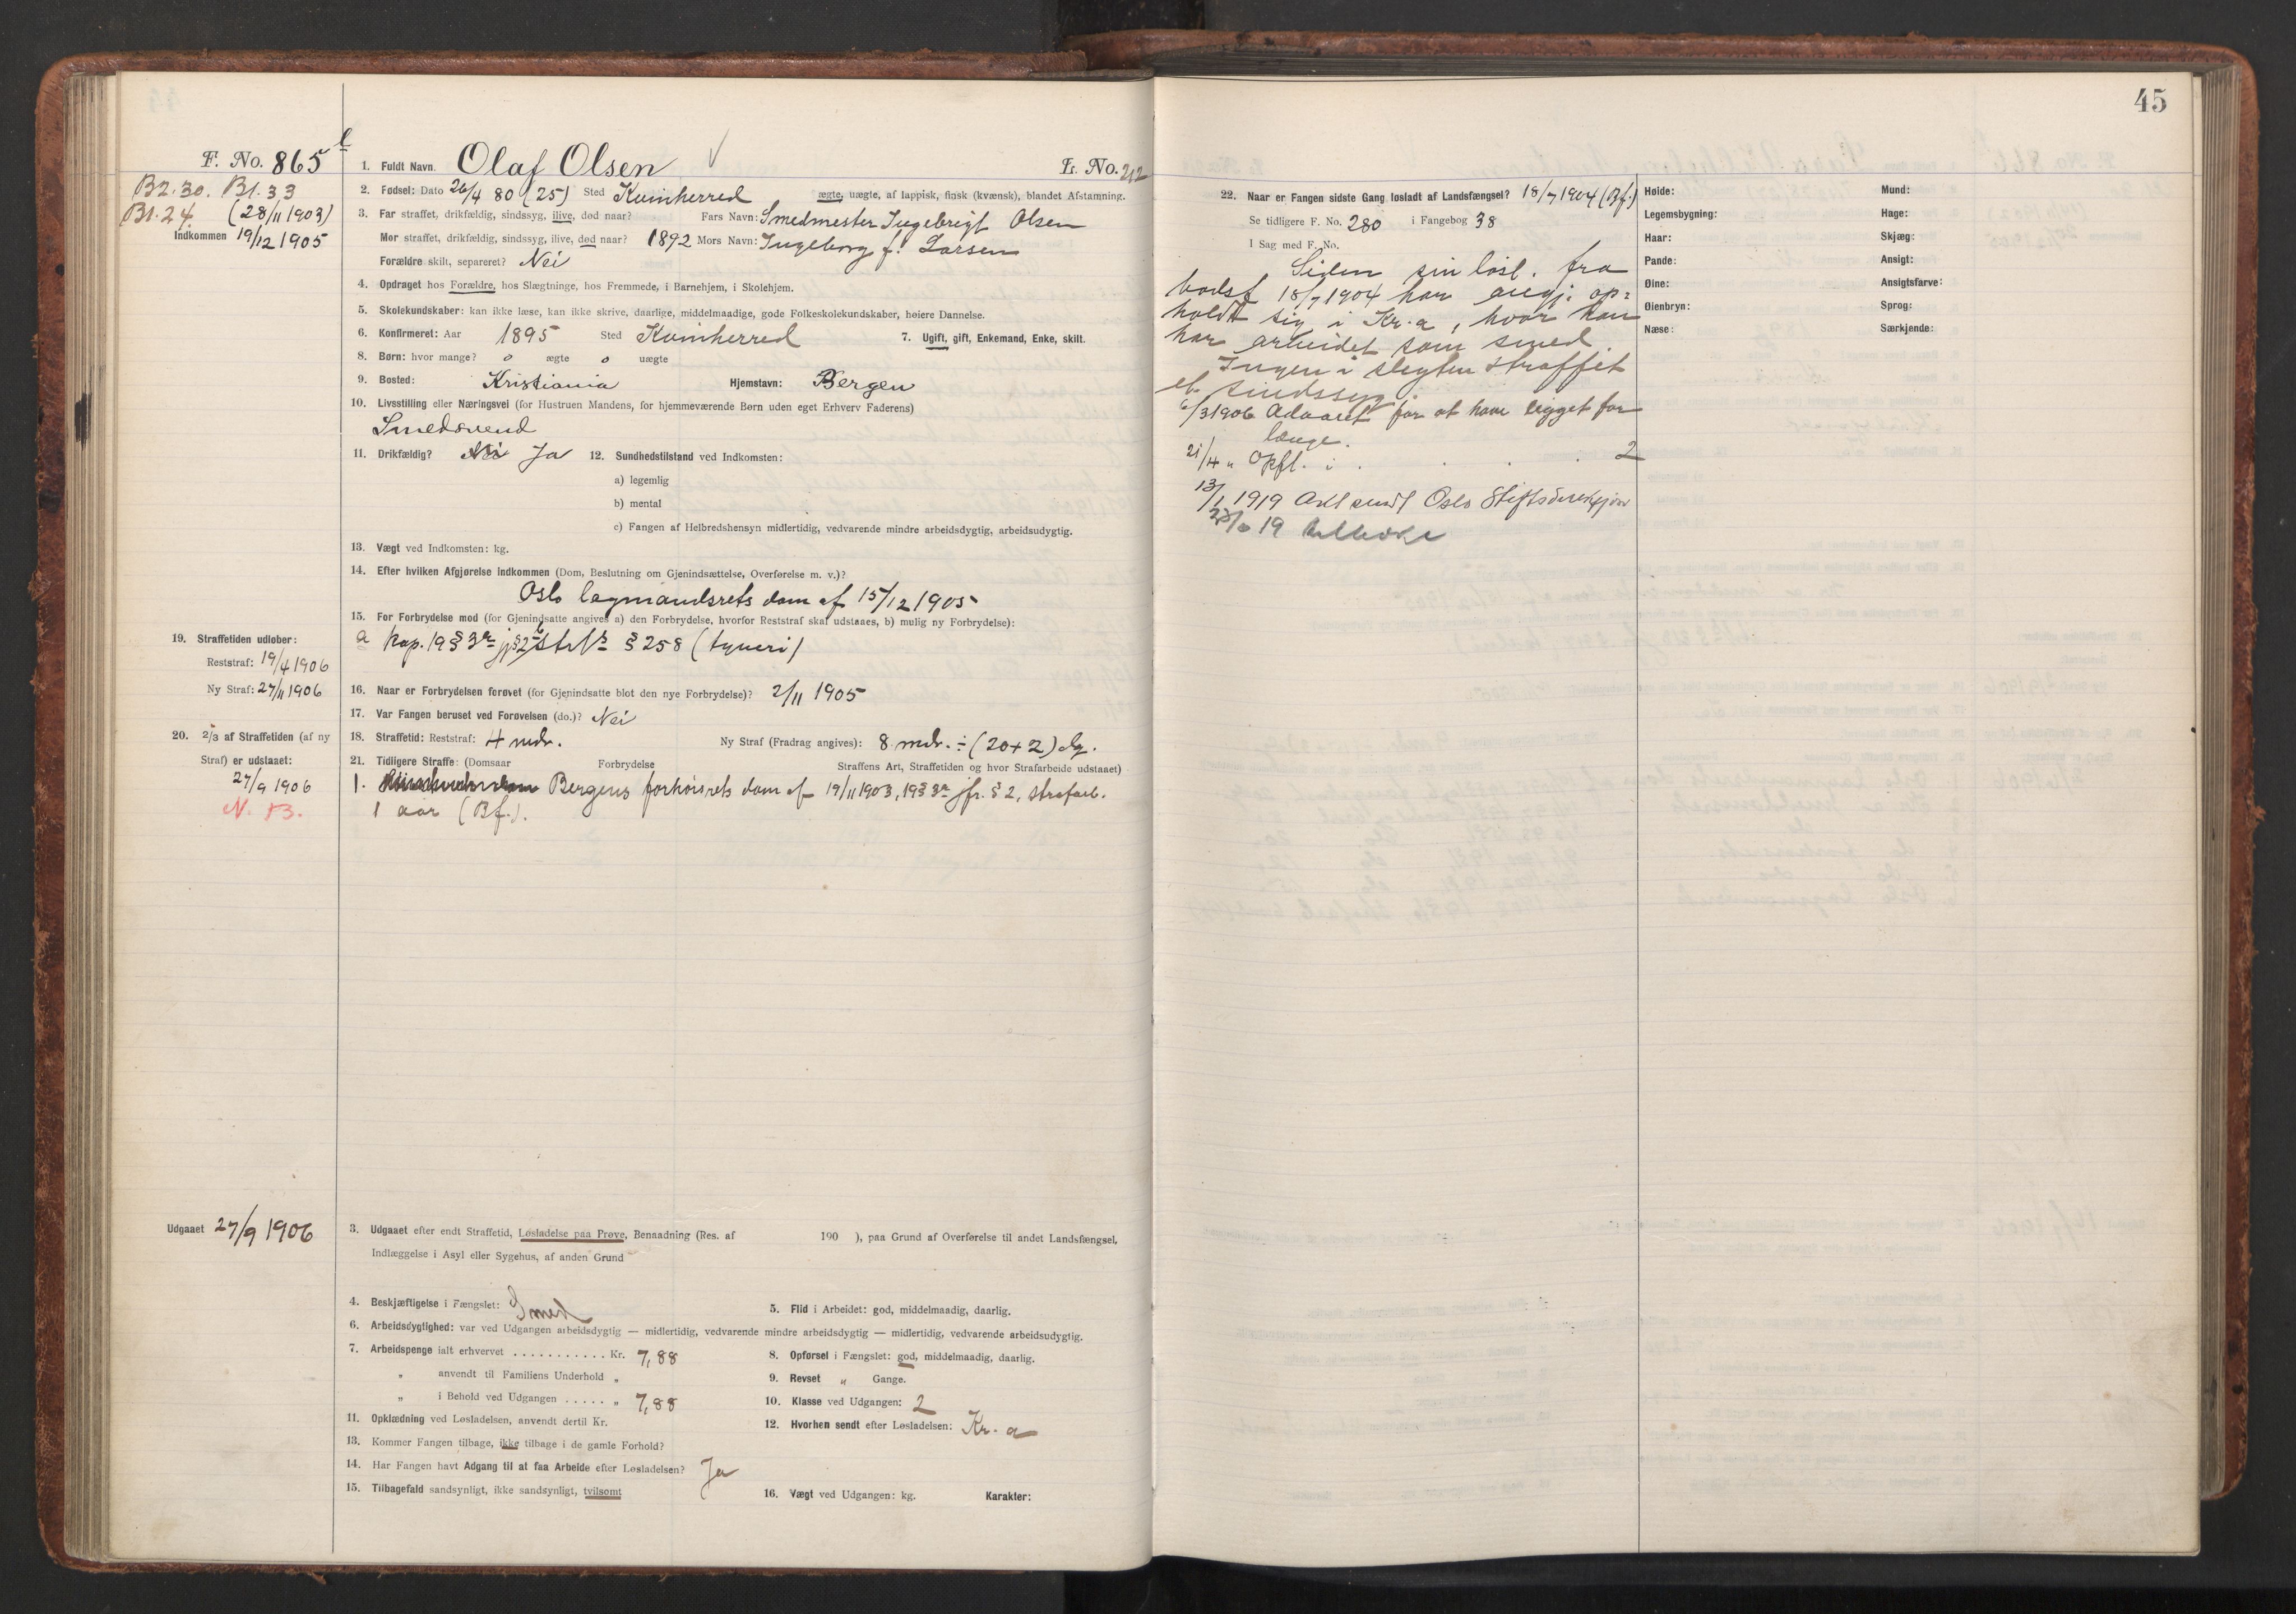 45
F. No. 865
1. Fuldt Navn Olaf Olsen
L. No. 212
B2.30. B1.33
B1.24. (28/11 1903)
Indkommen 19/12 1905
2. Fødsel: Dato 26/4 80 (25) Sted Kvinherred ægte, uægte, af lappisk, finsk (kvænsk), blandet Afstamning.
3. Far straffet, drikfældig, sindssyg, ilive, død naar? Fars Navn: Smedmester Ingebrigt Olsen
Mor straffet, drikfældig, sindssyg, ilive, død naar? 1892 Mors Navn: Ingeborg f. Larsen
Forældre skilt, separeret? Nei
4. Opdraget hos Forældre, hos Slægtninge, hos Fremmede, i Barnehjem, i Skolehjem.
5. Skolekundskaber: kan ikke læse, kan ikke skrive, daarlige, middelmaadige, gode Folkeskolekundskaber, høiere Dannelse.
6. Konfirmeret: Aar 1895 Sted Kvinherred 7. Ugift, gift, Enkemand, Enke, skilt.
8. Børn: hvor mange? 0 ægte 0 uægte
9. Bosted: Kristiania Hjemstavn: Bergen
10. Livsstilling eller Næringsvei (for Hustruen Mandens, for hjemmeværende Børn uden eget Erhverv Faderens)
Smedsvend
11. Drikfældig? Nei Ja 12. Sundhedstilstand ved Indkomsten:
a) legemlig
b) mental
c) Fangen af Helbredshensyn midlertidig, vedvarende mindre arbeidsdygtig, arbeidsudygtig.
13. Vægt ved Indkomsten: kg.
14. Efter hvilken Afgjørelse indkommen (Dom, Beslutning om Gjenindsættelse, Overførelse m. v.)?
Oslo lagmandsrets dom af 15/12 1905
15. For Forbrydelse mod (for Gjenindsatte angives a) den Forbrydelse, hvorfor Reststraf skal udstaaes, b) mulig ny Forbrydelse):
a kap. 19 § 3 jfr § 2 b § 258 (tyveri)
19. Straffetiden udløber:
Reststraf: 19/4 1906
Ny Straf: 27/11 1906
16. Naar er Forbrydelsen forøvet (for Gjenindsatte blot den nye Forbrydelse)? 2/11 1905
17. Var Fangen beruset ved Forøvelsen (do.)? Nei
18. Straffetid: Reststraf: 4 mdr. Ny Straf (Fradrag angives): 8 mdr. ÷ (20+2) dg.
20. 2/3 af Straffetiden (af ny
Straf) er udstaaet:
27/9 1906
N. B.
21. Tidligere Straffe: (Domsaar Forbrydelse Straffens Art, Straffetiden og hvor Strafarbeide udstaaet)
1. Bergens forhørsrets dom af 19/11 1903, 19 § 3 jfr. § 2, strafarb.
1 aar (Bf.).
Udgaaet 27/9 1906
3. Udgaaet efter endt Straffetid, Løsladelse paa Prøve, Benaadning (Res. af 190 ), paa Grund af Overførelse til andet Landsfængsel,
Indlæggelse i Asyl eller Sygehus, af anden Grund
4. Beskjæftigelse i Fængslet: Smed 5. Flid i Arbeidet: god, middelmaadig, daarlig.
6. Arbeidsdygtighed: var ved Udgangen arbeidsdygtig — midlertidig, vedvarende mindre arbeidsdygtig — midlertidig, vedvarende arbeidsudygtig.
7. Arbeidspenge ialt erhvervet . . . . . . . . . . . Kr. 7,88 8. Opførsel i Fængslet: god, middelmaadig, daarlig.
„ anvendt til Familiens Underhold „ 9. Revset „ Gange.
„ i Behold ved Udgangen . . . . . „ 7,88 10. Klasse ved Udgangen: 2
11. Opklædning ved Løsladelsen, anvendt dertil Kr. 12. Hvorhen sendt efter Løsladelsen: Kr.a
13. Kommer Fangen tilbage, ikke tilbage i de gamle Forhold?
14. Har Fangen havt Adgang til at faa Arbeide efter Løsladelsen? Ja
15. Tilbagefald sandsynligt, ikke sandsynligt, tvilsomt 16. Vægt ved Udgangen: kg. Karakter:
22. Naar er Fangen sidste Gang løsladt af Landsfængsel? 18/7 1904 (Bf.)
Se tidligere F. No. 280 i Fangebog 38
I Sag med F. No.
Siden sin løsl. fra
bodsf 18/7 1904 har angj. op=
holdt sig i Kr.a, hvor han
har arbeidet som smed.
Ingen i slegten straffet
el. sindssyg.
6/3 1906 Advaret for at have ligget for
længe.
21/4 „ Opfl. i . . . . 2
13/1 1919 Akt sendt Oslo
19 tilbake
Høide: Mund:
Legemsbygning: Hage:
Haar: Skjæg:
Pande: Ansigt:
Øine: Ansigtsfarve:
Øienbryn: Sprog:
Næse: Særkjende: